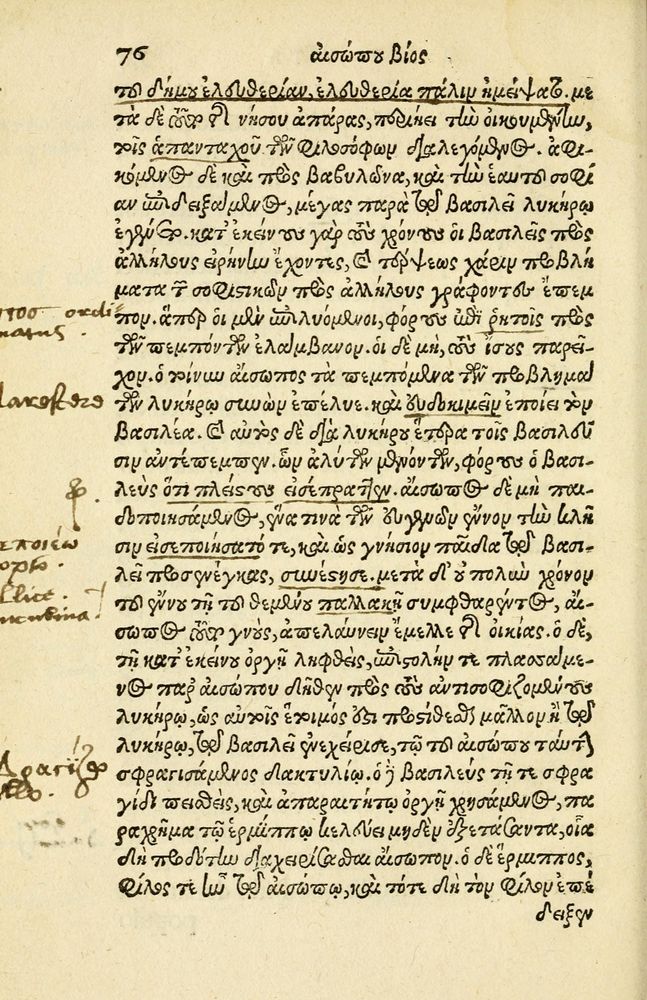 76 αἰσώπου βίος
τοῦ δήμου ἐλευθερίαν, ἐλευθερία πάλιν ἠμείψατο. με
τὰ δὲ ταῦτα τῆς νήσου ἀπάρας, περιῄει τὴν οἰκουμένην,
τοῖς ἁπανταχοῦ τῶν φιλοσόφων διαλεγόμενος. ἀφι-
κόμενος δὲ καὶ πρὸς βαβυλῶνα, καὶ τὴν ἑαυτοῦ σοφί
αν ἐπιδειξάμενος, μέγας παρὰ τῷ βασιλεῖ λυκήρῳ
ἐγένετο. κατ' ἐκείνους γὰρ τοὺς χρόνους οἱ βασιλεῖς πρὸς
ἀλλήλους εἰρήνην ἔχοντες, καὶ τέρψεως χάριν προβλή
ματα τῶν σοφιστικῶν πρὸς ἀλλήλους γράφοντες ἔπεμ
πον. ἅπερ οἱ μὲν ἐπιλυόμενοι, φόρους ἐπὶ ῥητοῖς πρὸς
τῶν πεμπόντων ἐλάμβανον. οἱ δὲ μὴ, τοὺς ἴσους παρεῖ-
χον. ὁ τοίνυν αἴσωπος τὰ πεμπόμενα τῶν προβλημά
των λυκήρῳ συνιὼν ἐπέλυε. καὶ εὐδοκιμεῖν ἐποίει τὸν
βασιλέα. καὶ αὐτὸς δὲ διὰ λυκήρου ἕτερα τοῖς βασιλεῦ
σιν ἀντέπεμπεν. ὧν ἀλύτων μενόντων, φόρους ὁ βασι-
λεὺς ὅτι πλείστους εἰσέπραττεν. αἴσωπος δὲ μὴ παι-
δοποιησάμενος, ἕνα τινὰ τῶν εὐγενῶν ἔννον τὴν κλῆ
σιν εἰσεποιήσατό τε, καὶ ὡς γνήσιον παῖδα τῷ βασι-
λεῖ προσενέγκας, συνέστησε. μετὰ δ' οὐ πολὺν χρόνον
τοῦ ἔννου τῇ τοῦ θεμένου παλλακῇ συμφθαρέντος, αἴ-
σωπος τοῦτο γνοὺς, ἀπελαύνειν ἔμελλε τῆς οἰκίας. ὁ δὲ,
τῇ κατ' ἐκείνου ὀργῇ ληφθεὶς, ἐπιστολήν τε πλασάμε-
νος παρ' αἰσώπου δῆθεν πρὸς τοὺς ἀντισοφιζομένους
λυκήρῳ, ὡς αὐτοῖς ἕτοιμός ἐστι προστίθεσθαι μᾶλλον ἢ τῷ
λυκήρῳ, τῷ βασιλεῖ ἐνεχείρισε, τῷ τοῦ αἰσώπου ταύτην
σφραγισάμενος δακτυλίῳ. ὁ δὲ βασιλεὺς τῇ τε σφρα
γίδι πεισθεὶς, καὶ ἀπαραιτήτῳ ὀργῇ χρησάμενος, πα
ραχρῆμα τῷ ἑρμίππῳ κελεύει μηδὲν ἐξετάσαντα, οἷα
δὴ προδότην διαχειρίσασθαι αἴσωπον. ὁ δὲ ἕρμιππος,
φίλος τε ἦν τῷ αἰσώπῳ, καὶ τότε δὴ τὸν φίλον ἐπέ
δειξεν